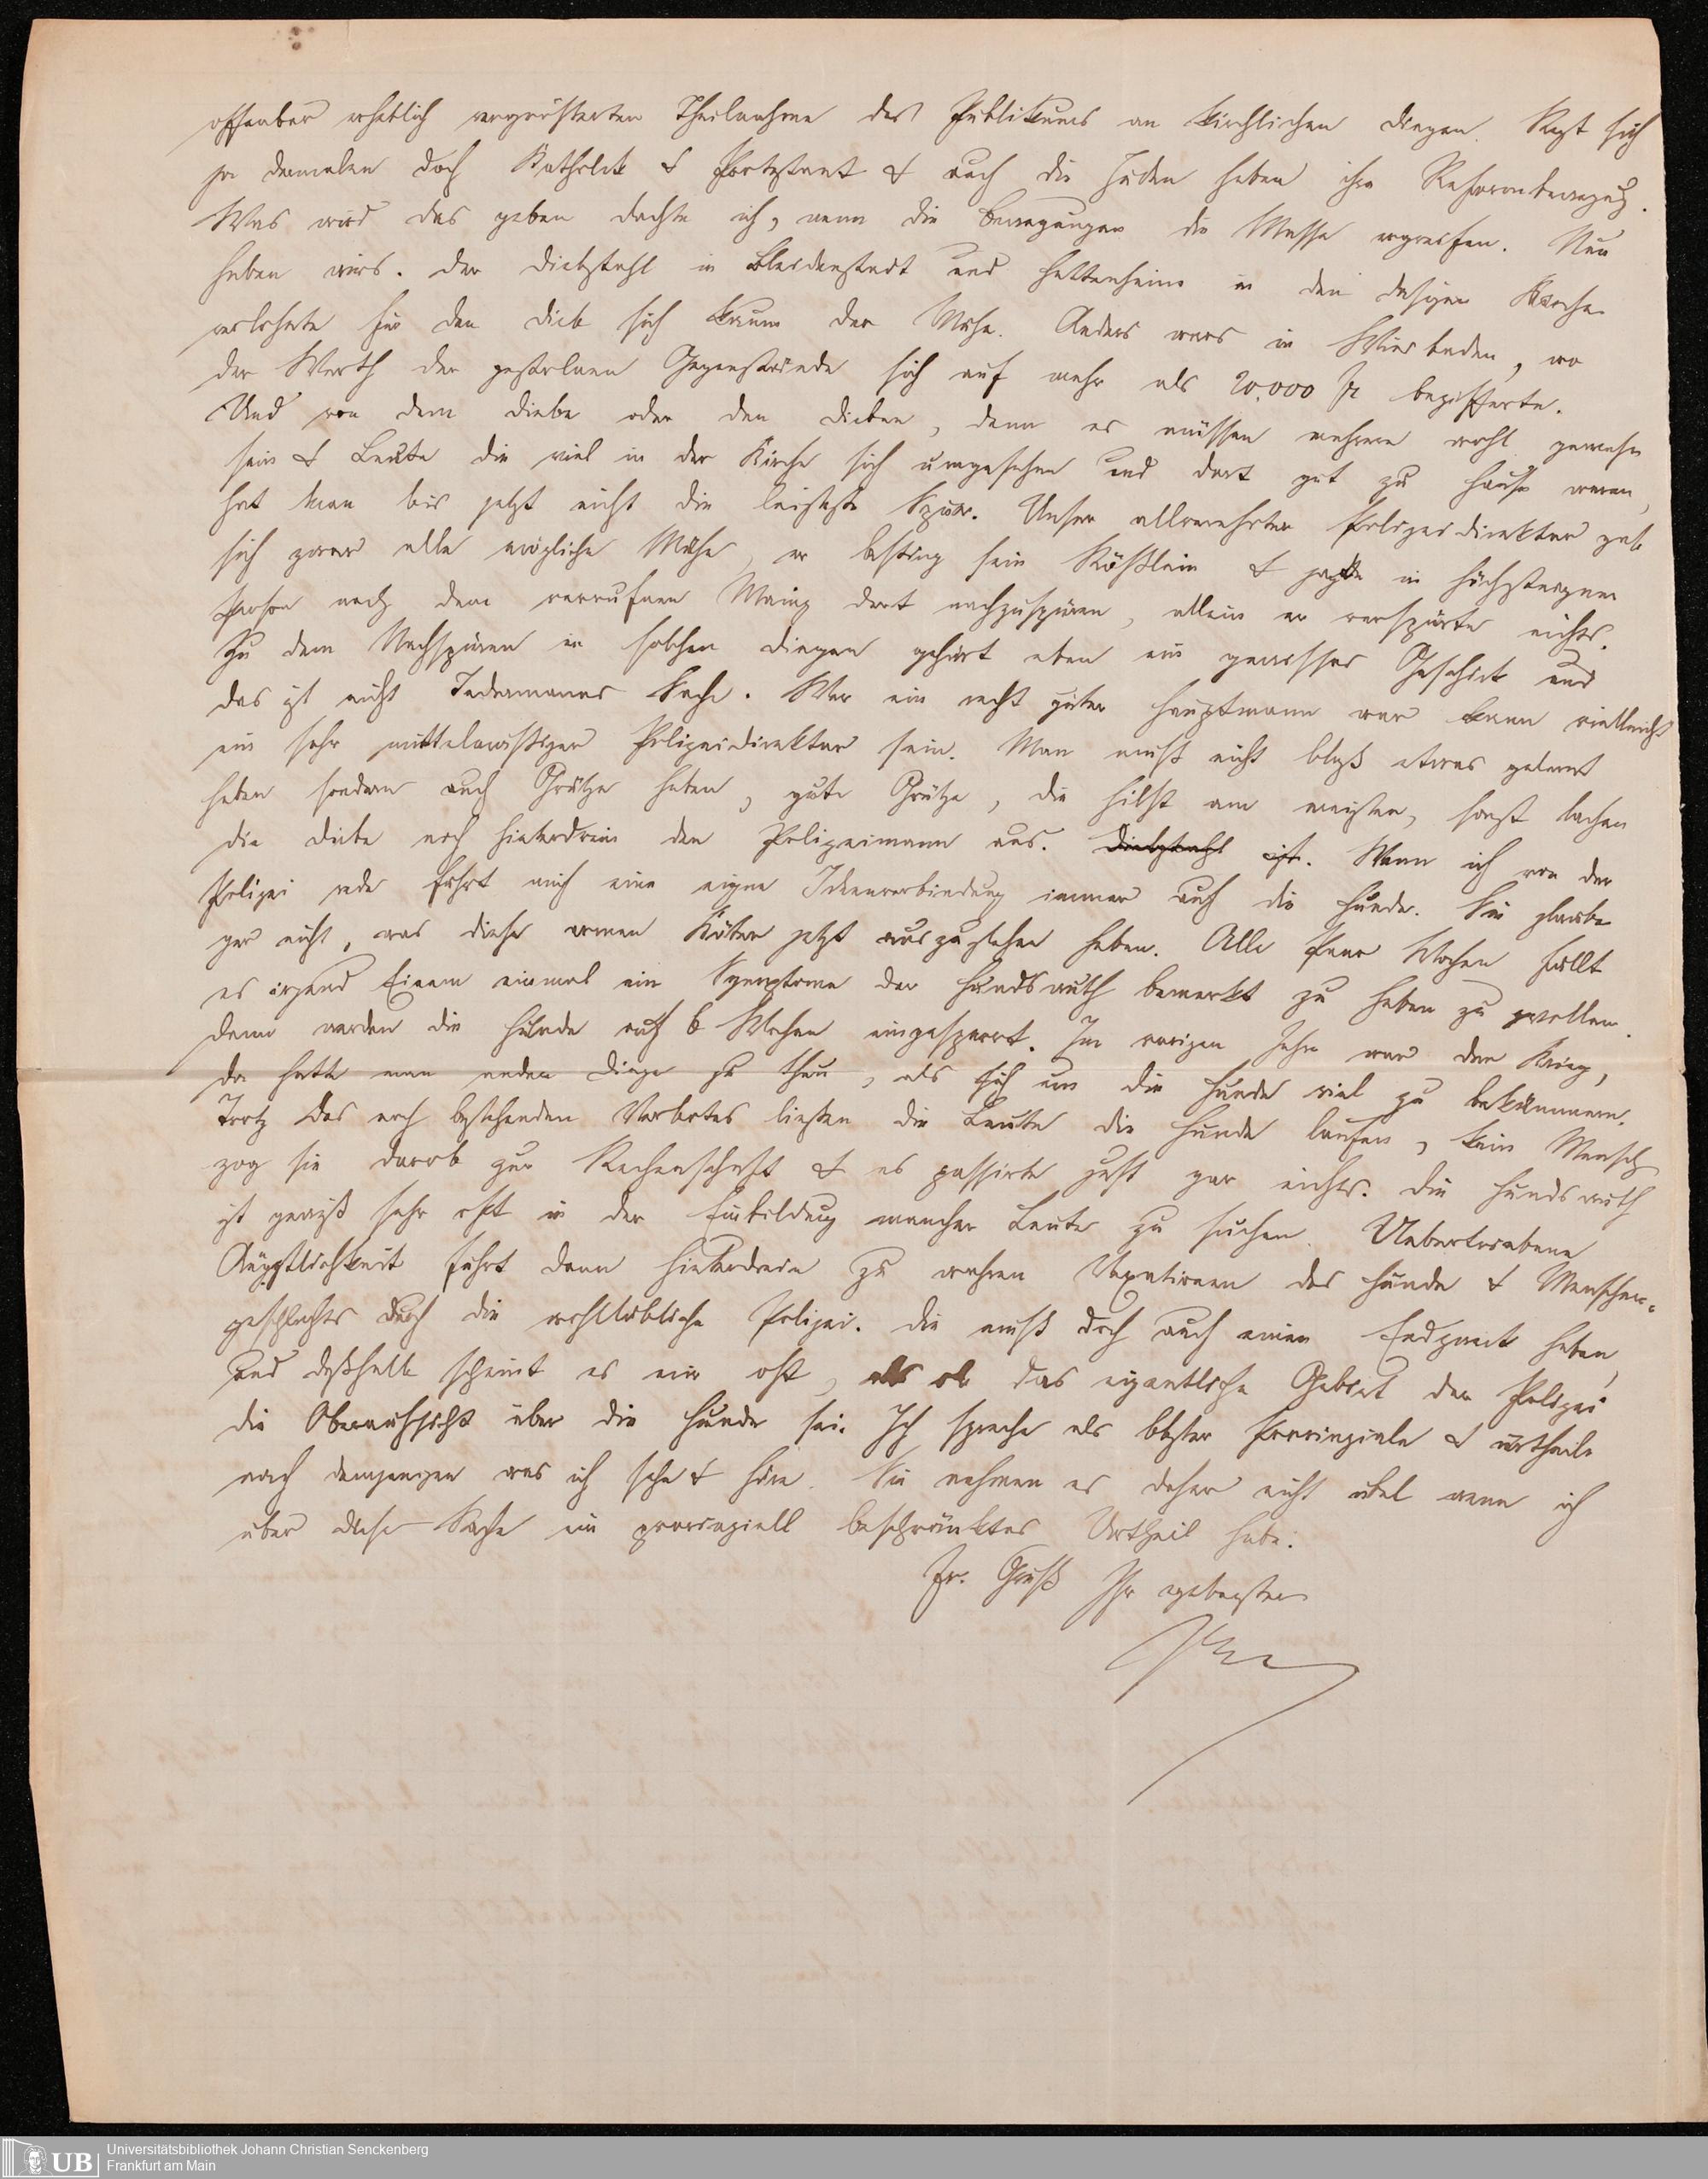 offenbar erheblich vergrößerten Theilnahme des Publikums an kirchlichen Dingen. Regt sich
ja dermalen doch Katholik & Protestant & auch die Juden haben ihre Reformbewegung.
Was wird das geben dachte ich, wenn die Bewegungen die Masse ergreifen. Nun
haben wirs. Der Diebstahl in Bleidenstadt und Hattenheim in den dasigen Kirchen
verlohnte für den Dieb sich kaum der Mühe. Anders wars in Wiesbaden, wo
der Werth der gestohlnen Gegenstände sich auf mehr als 20,000 fl bezifferte.
Und von dem Diebe oder den Dieben, denn es müssen mehrere wohl gewesen
sein & Leute die viel in der Kirche sich umgesehen und dort gut zu Hause waren,
hat man bis jetzt nicht die leiseste Spur. Unser allverehrter Polizeidirektor gab
sich zwar alle mögliche Mühe, er bestieg sein Rößlein & jagte in höchsteigner
Person nach dem verrufnen Mainz dort nachzuspüren, allein er verspürte nichts.
Zu dem Nachspüren in solchen Dingen gehört eben ein gewisses Geschick und
das ist nicht Jedermanns Sache. Wer ein recht guter Hauptmann war kann vielleicht
ein sehr mittelmäßiger Polizeidirektor sein. Man muß nicht bloß etwas gelernt
haben sondern auch Grütze haben, gute Grütze, die hilft am meisten, sonst lachen
die Diebe noch hinterdrein den Polizeimann aus. Diebstahl ist. Wenn ich von der
Polizei rede führt mich eine eigne Ideenverbindung immer auf die Hunde. Sie glauben
gar nicht, was diese armen Köter jetzt auszustehen haben. Alle paar Wochen fällt
es irgend Einem einmal ein Symptome der Hundswuth bemerkt zu haben zu wollen.
Dann werden die Hunde auf 6 Wochen eingesperrt. Im vorigen Jahr war der Krieg,
da hatte man andere Dinge zu thun, als sich um die Hunde viel zu bekümmern.
Trotz des noch bestehenden Verbotes ließen die Leute die Hunde laufen, kein Mensch
zog sie darob zur Rechenschaft & es passirte just gar nichts. Die Hundswuth
ist gewiß sehr oft in der Einbildung mancher Leute zu suchen. Uebertriebene
Aengstlichkeit führt dann hinterdrein zu wahren Vexationen des Hunde & Menschen-
geschlechts durch die wohllöbliche Polizei. Die muß doch auch einen Endzweck haben,
und deßhalb scheint es mir oft, als ob das eigentliche Gebiet der Polizei
die Oberaufsicht über die Hunde sei. Ich spreche als bloßer Provinziale & urtheile
nach demjenigen was ich sehe & höre. Sie nehmen es daher nicht übel wenn ich
über diese Sache ein provinziell beschränktes Urtheil habe.
Fr. Gruß Ihr ergebenster